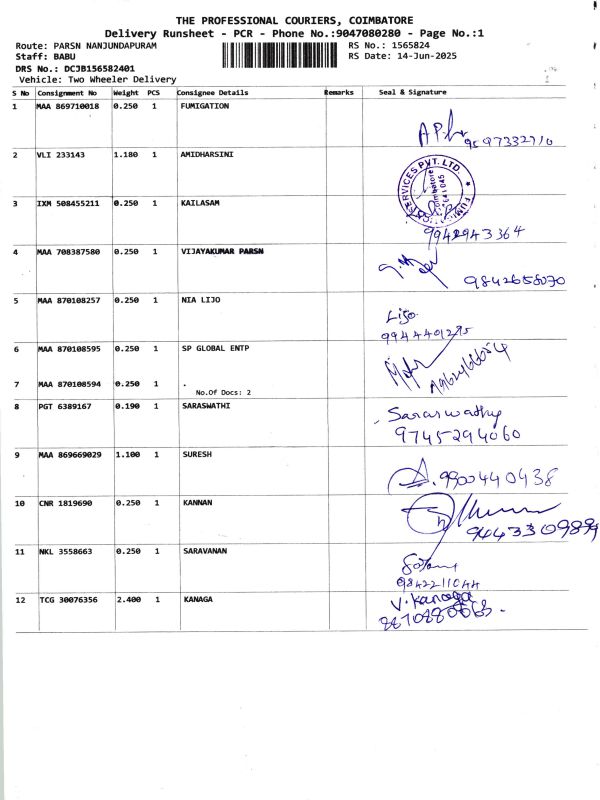 THE PROFESSIONAL COURIERS, COIMBATORE
Delivery Runsheet - PCR - Phone No.:9047080280 - Page No.:1
Route: PARSN NANJUNDAPURAM RS No.: 1565824
Staff: BABU RS Date: 14-Jun-2025
DRS No.: DCJB156582401
Vehicle: Two Wheeler Delivery
S No Consignment No Weight PCS Consignee Details Remarks Seal & Signature
1 MAA 869710018 0.250 1 FUMIGATION
2 VLI 233143 1.180 1 AMIDHARSINI
SERVICES PVT. LTD.
Coimbatore
641 045
3 IXM 508455211 0.250 1 KAILASAM
9942943364
4 MAA 708387580 0.250 1 VIJAYAKUMAR PARSN
9842658070
5 MAA 870108257 0.250 1 NIA LIJO
Lijo
9944401295
6 MAA 870108595 0.250 1 SP GLOBAL ENTP
7 MAA 870108594 0.250 1 .
No.Of Docs: 2
8 PGT 6389167 0.190 1 SARASWATHI
Saraswathy
9745294060
9 MAA 869669029 1.100 1 SURESH
9900440438
10 CNR 1819690 0.250 1 KANNAN
9443309899
11 NKL 3558663 0.250 1 SARAVANAN
9842211044
12 TCG 30076356 2.400 1 KANAGA
V. Kanaga